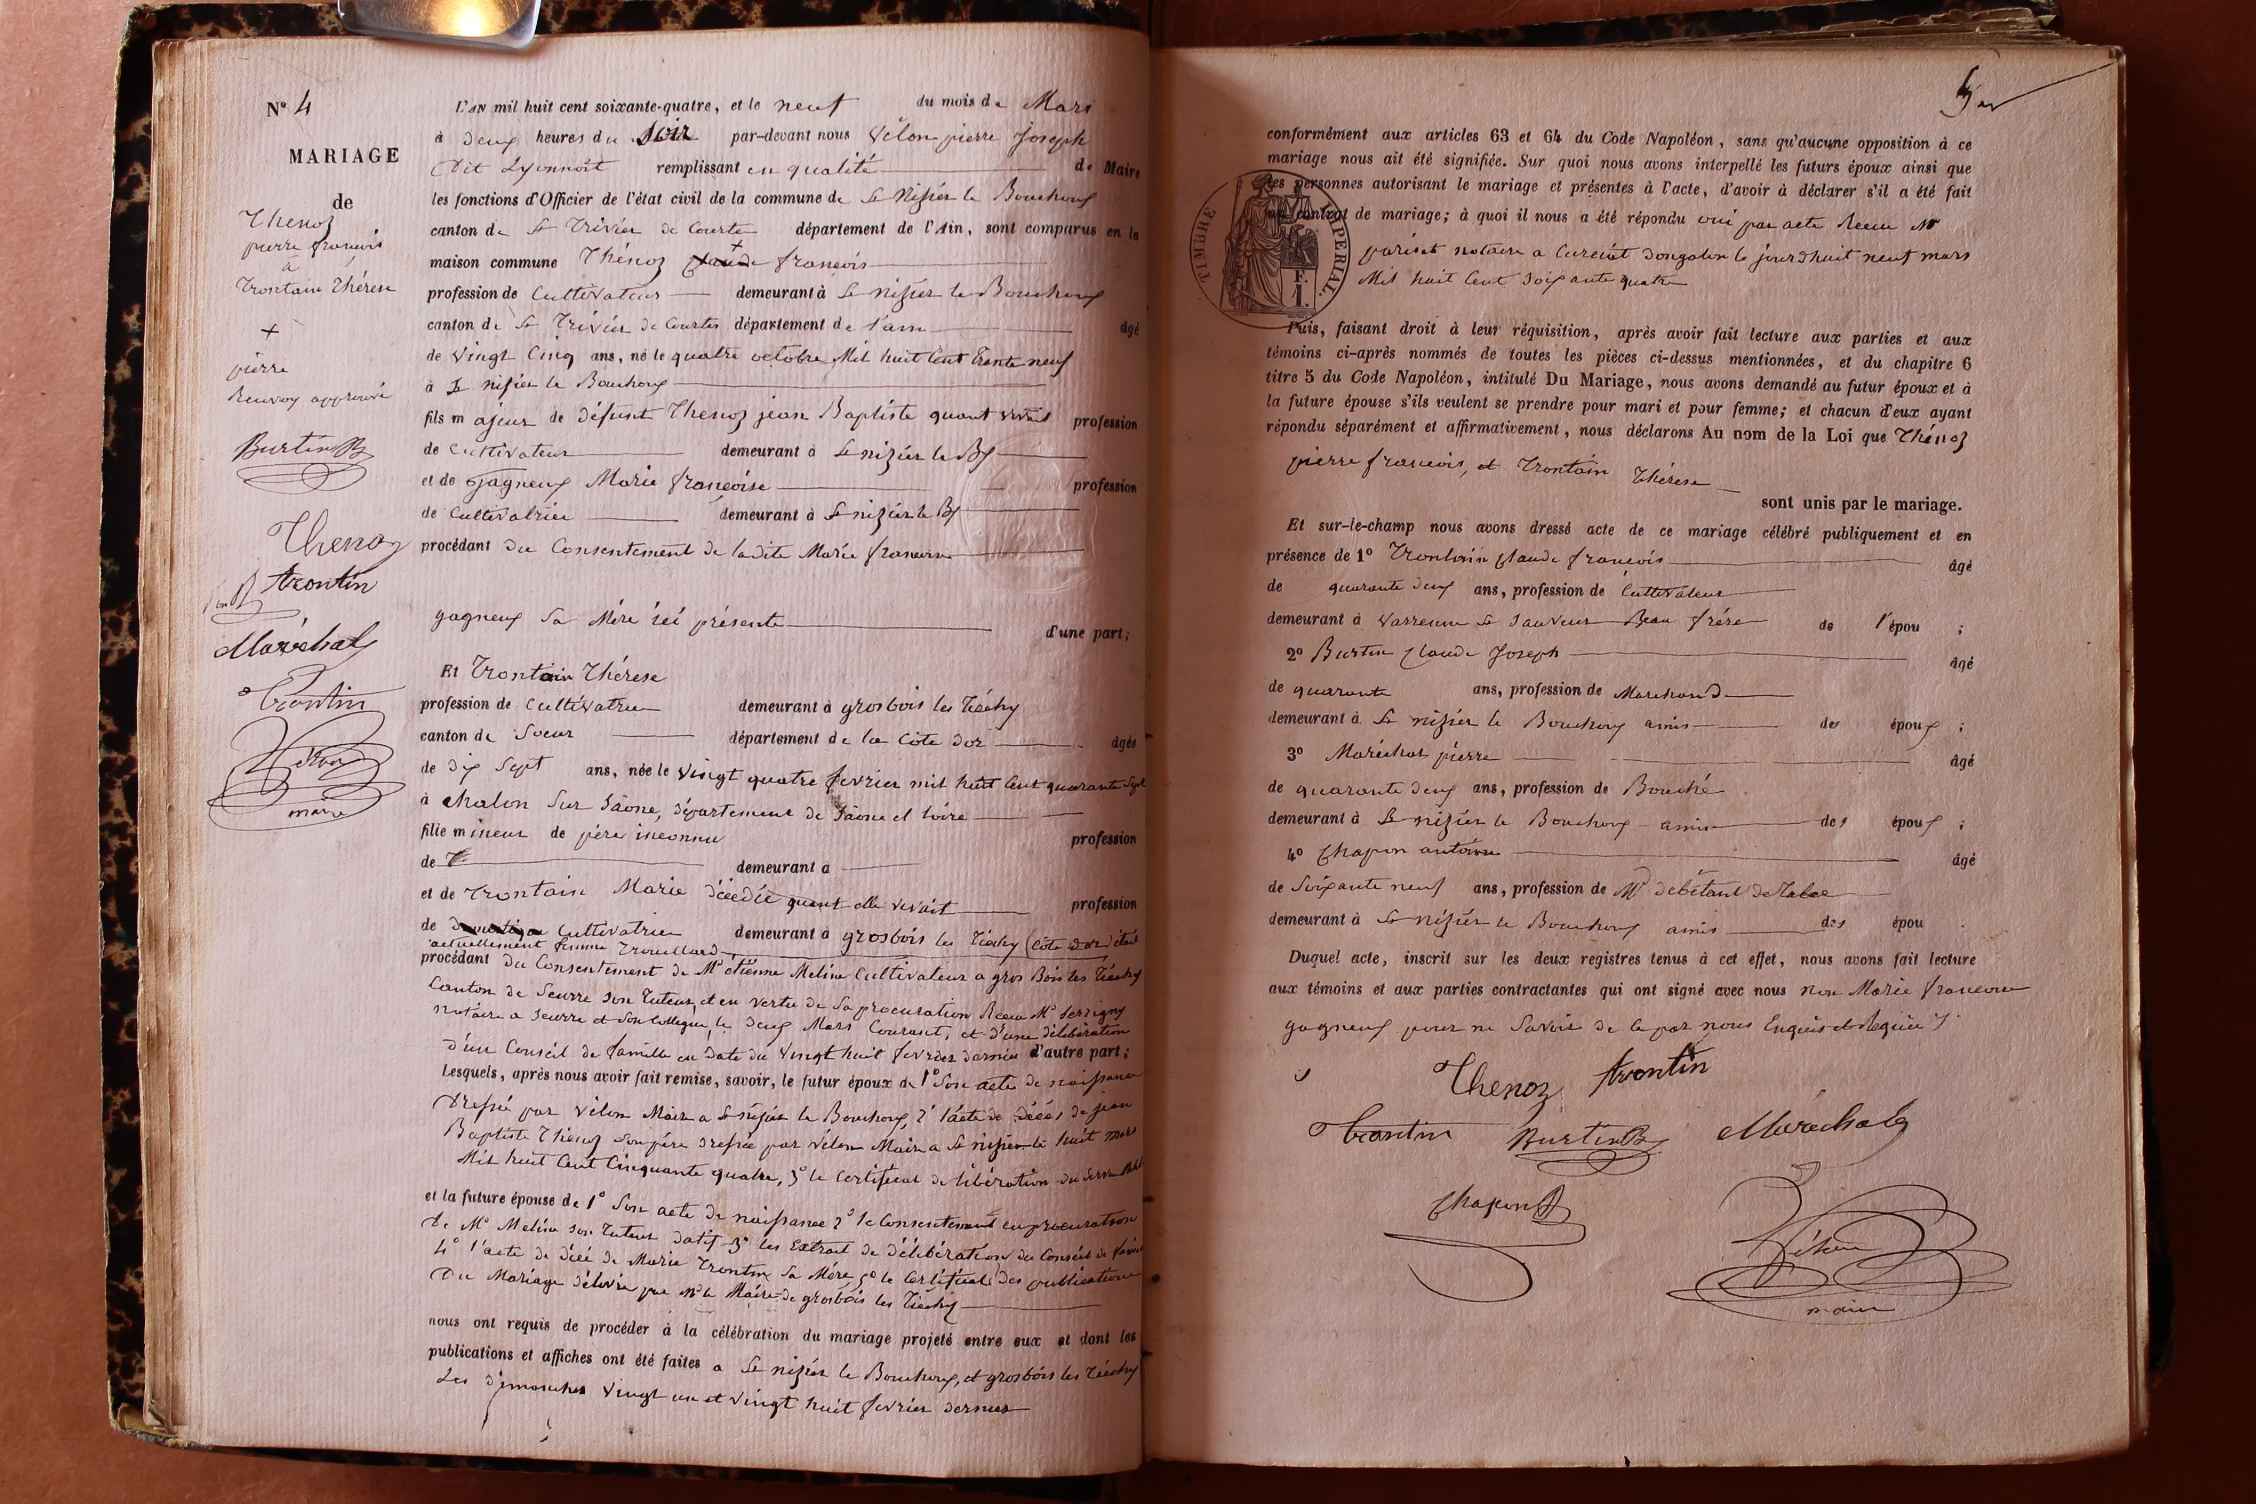 N° 4
MARIAGE
de
Thenoz
pierre françois
à
Trontain Thérèse
+
pierre
Renvoy approuvé
Burtin
Thenoz
trontin
Maréchal
Trontin
Vélon
maire
L'AN mil huit cent soixante-quatre, et le neuf du mois de Mars
à deux heures du soir par-devant nous Vélon pierre Joseph
Dit Lyonnoit remplissant en qualité de Maire
les fonctions d'Officier de l'état civil de la commune de St Nizier le Bouchoux
canton de St Trivier de Courtes département de l'Ain, sont comparus en la
maison commune Thénoz Claude + françois
profession de Cultivateur demeurant à St nizier le Bouchoux
canton de St Trivier de Courtes département de l'ain âgé
de Vingt Cinq ans, né le quatre octobre Mil huit Cent Trente neuf
à St nizier le Bouchoux
fils majeur de Défunt Thenoz jean Baptiste quant vivait profession
de Cultivateur demeurant à St nizier le Bx
et de gagneux Marie françoise profession
de Cultivatrice demeurant à St nizier le Bx
procédant du Consentement de ladite Marie francoise
gagneux Sa Mère ici présente d'une part;
Et Trontain Thérèse
profession de Cultivatrice demeurant à grosbois les Tichy
canton de Soeur département de la Côte d'or âgée
de dix Sept ans, née le vingt quatre fevrier mil huit Cent quarante Sept
à chalon Sur Saône, département de Saône et loire
fille mineur de père inconnu profession
de demeurant à
et de Trontain Marie décédée quant elle vivait profession
de Cultivatrice demeurant à grosbois les Tichy (côte d'or) était
actuellement femme Trouillard
procédant du Consentement de Mr étienne Melin Cultivateur a gros Bois les Tichy
Canton de Seurre son Tuteur, et en vertu de Sa procuration Recu Me Serrigny
notaire a Seurre et Son Collegue, le deux Mars Courant, et d'une délibération
d'un Conseil de famille en date du Vingt huit fevrier dernier d'autre part;
Lesquels, après nous avoir fait remise, savoir, le futur époux de 1° Son acte de naissance
Dressé par Vélon Maire a St nizier le Bouchoux, 2° l'acte de décés de jean
Baptiste Thénoz Son père dressé par Vélon Maire a St nizier le huit mars
Mil huit Cent Cinquante quatre, 3° le Certificat de libération du Service
et la future épouse de 1° Son acte de naissance 2° le Consentement en procuration
De Mr Melin son Tuteur datif 3° les Extrait de délibération du Conseil de famille
4° l'acte de décé de Marie Trontin Sa Mère 5° le Certificat des publications
Du Mariage délivré par Mr le Maire de grosbois les Tichy
nous ont requis de procéder à la célébration du mariage projeté entre eux et dont les
publications et affiches ont été faites a St nizier le Bouchoux, et grosbois les Tichy
Les Dimanches vingt un et vingt huit fevrier dernier
conformément aux articles 63 et 64 du Code Napoléon, sans qu'aucune opposition à ce
mariage nous ait été signifiée. Sur quoi nous avons interpellé les futurs époux ainsi que
les personnes autorisant le mariage et présentes à l'acte, d'avoir à déclarer s'il a été fait
un contrat de mariage; à quoi il nous a été répondu oui par acte Recu Me
pariset notaire a Curciat Dongalon le jourd'huit neuf mars
Mil huit Cent Soixante quatre
TIMBRE IMPERIAL
F.
1.
Puis, faisant droit à leur réquisition, après avoir fait lecture aux parties et aux
témoins ci-après nommés de toutes les pièces ci-dessus mentionnées, et du chapitre 6
titre 5 du Code Napoléon, intitulé Du Mariage, nous avons demandé au futur époux et à
la future épouse s'ils veulent se prendre pour mari et pour femme; et chacun d'eux ayant
répondu séparément et affirmativement, nous déclarons Au nom de la Loi que Thénoz
pierre francois, et Trontain Thérèse
sont unis par le mariage.
Et sur-le-champ nous avons dressé acte de ce mariage célébré publiquement et en
présence de 1° Trontain Claude francois âgé
de quarante deux ans, profession de Cultivateur
demeurant à Varrenne St Sauveur Beau frère de l'épou ;
2° Burtin Claude Joseph âgé
de quarante ans, profession de Marchand
demeurant à St nizier le Bouchoux amis des époux ;
3° Maréchal pierre âgé
de quarante deux ans, profession de Bouché
demeurant à St nizier le Bouchoux amis des époux ;
4° Chapon antoine âgé
de Soixante neuf ans, profession de Md debitant de Tabac
demeurant à St nizier le Bouchoux amis des épou
Duquel acte, inscrit sur les deux registres tenus à cet effet, nous avons fait lecture
aux témoins et aux parties contractantes qui ont signé avec nous non Marie francoise
gagneux pour ne Savoir de le par nous Enquis et Requis
Thenoz trontin
Trontin Burtin Maréchal
Chapon
Vélon
maire